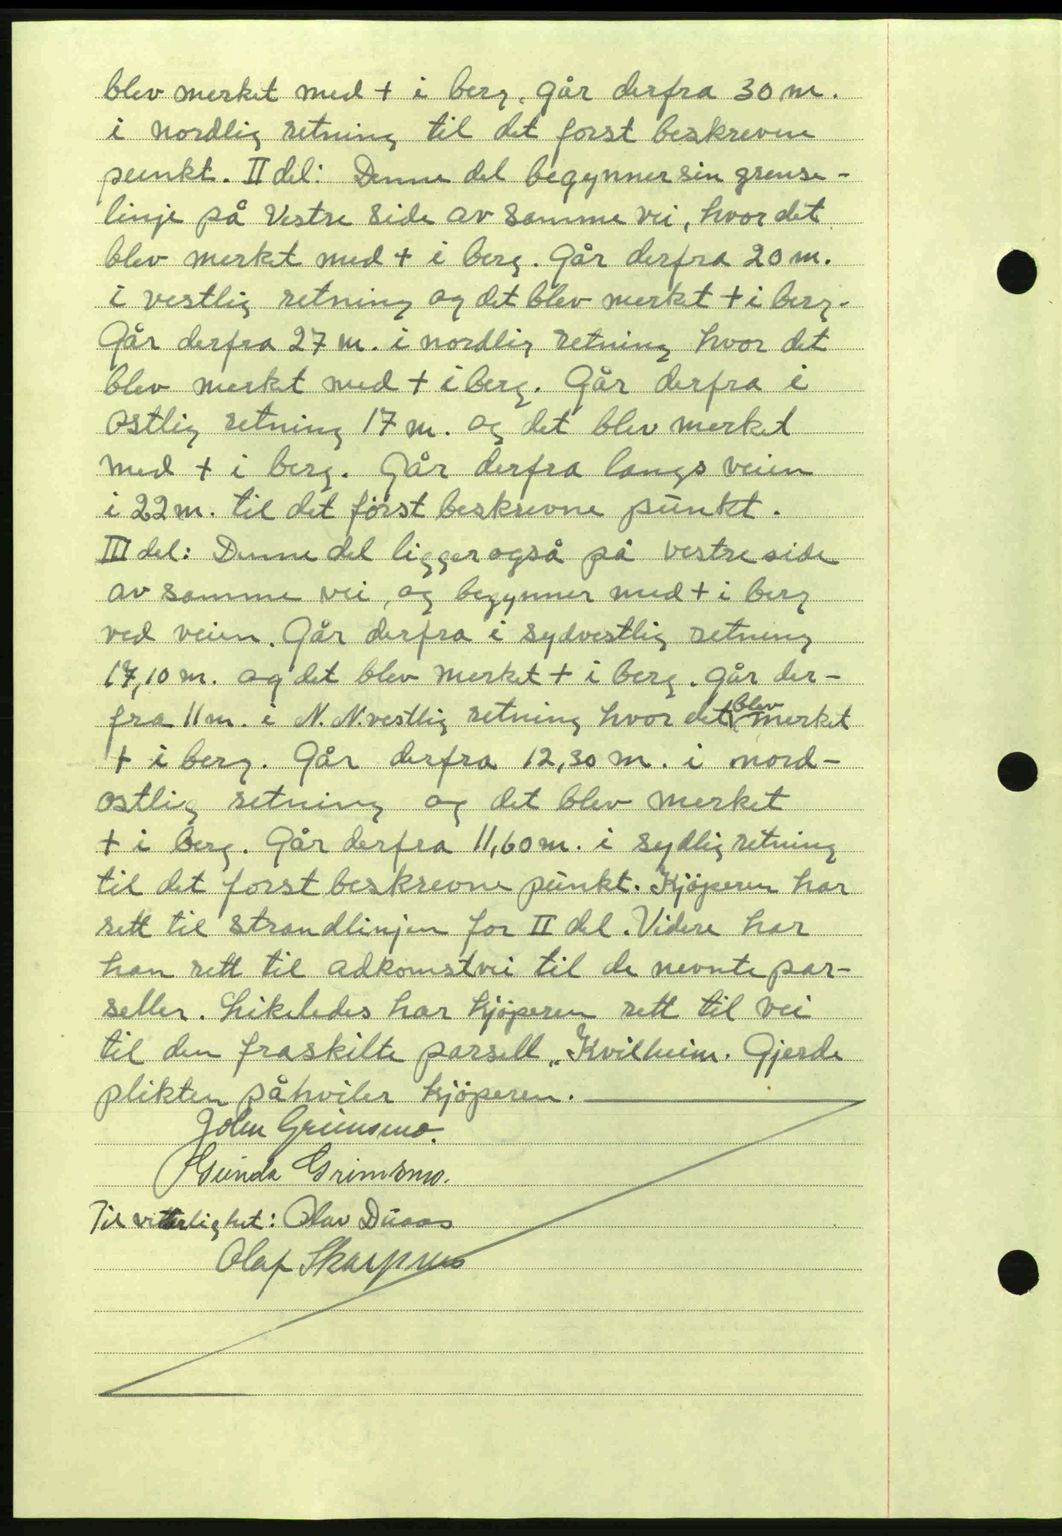 blev merket med + i berg. Går derfra 30 m.
i nordlig retning til det først beskrevne
punkt. II del: Denne del begynner sin grense-
linje på Vestre side av samme vei, hvor det
blev merket med + i berg. Går derfra 20 m.
i vestlig retning og det blev merkt + i berg.
Går derfra 27 m. i nordlig retning hvor det
blev merkt med + i berg. Går derfra i
østlig retning 17 m. og det blev merket
med + i berg. Går derfra langs veien
i 22 m. til det först beskrevne punkt.
III del: Denne del ligger også på vestre side
av samme vei, og begynner med + i berg
ved veien. Går derfra i sydvestlig retning
17,10 m. og det blev merket + i berg. Går der-
fra 11 m. i N.N.vestlig retning hvor det blev merket
+ i berg. Går derfra 12,30 m. i nord-
østlig retning og det blev merket
+ i berg. Går derfra 11,60 m. i sydlig retning
til det først beskrevne punkt. Kjöperen har
rett til strandlinjen for II del. Videre har
han rett til adkomstvei til de nevnte par-
seller. Likeledes har kjöperen rett til vei
til den fraskilte parsell „Kvilheim. Gjerde
plikten påhviler kjöperen.
John Grimsmo.
Gunda Grimsmo.
Til vitterlighet: Olav Duaas
Olaf Skarpnes